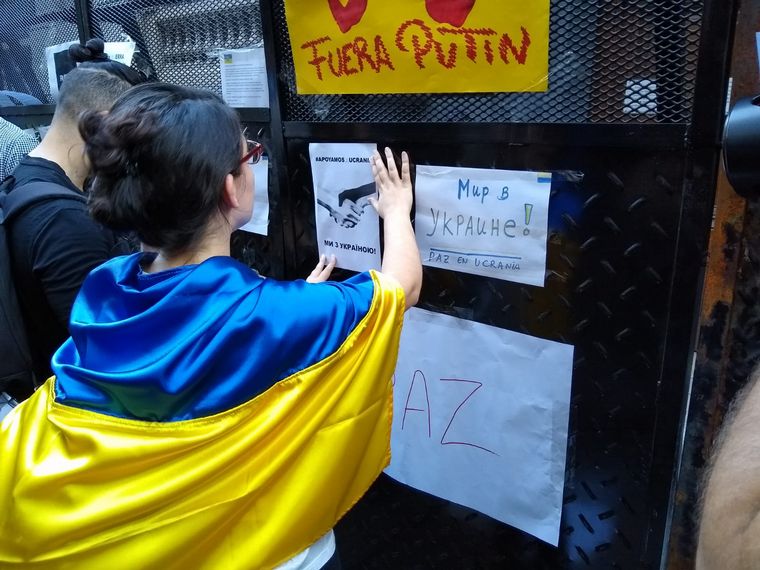 FUERA PUTIN
#APOYAMOS UCRANI
МИ З УКРАЇНОЮ!
Мир в
Украине!
PAZ EN UCRANIA
PAZ